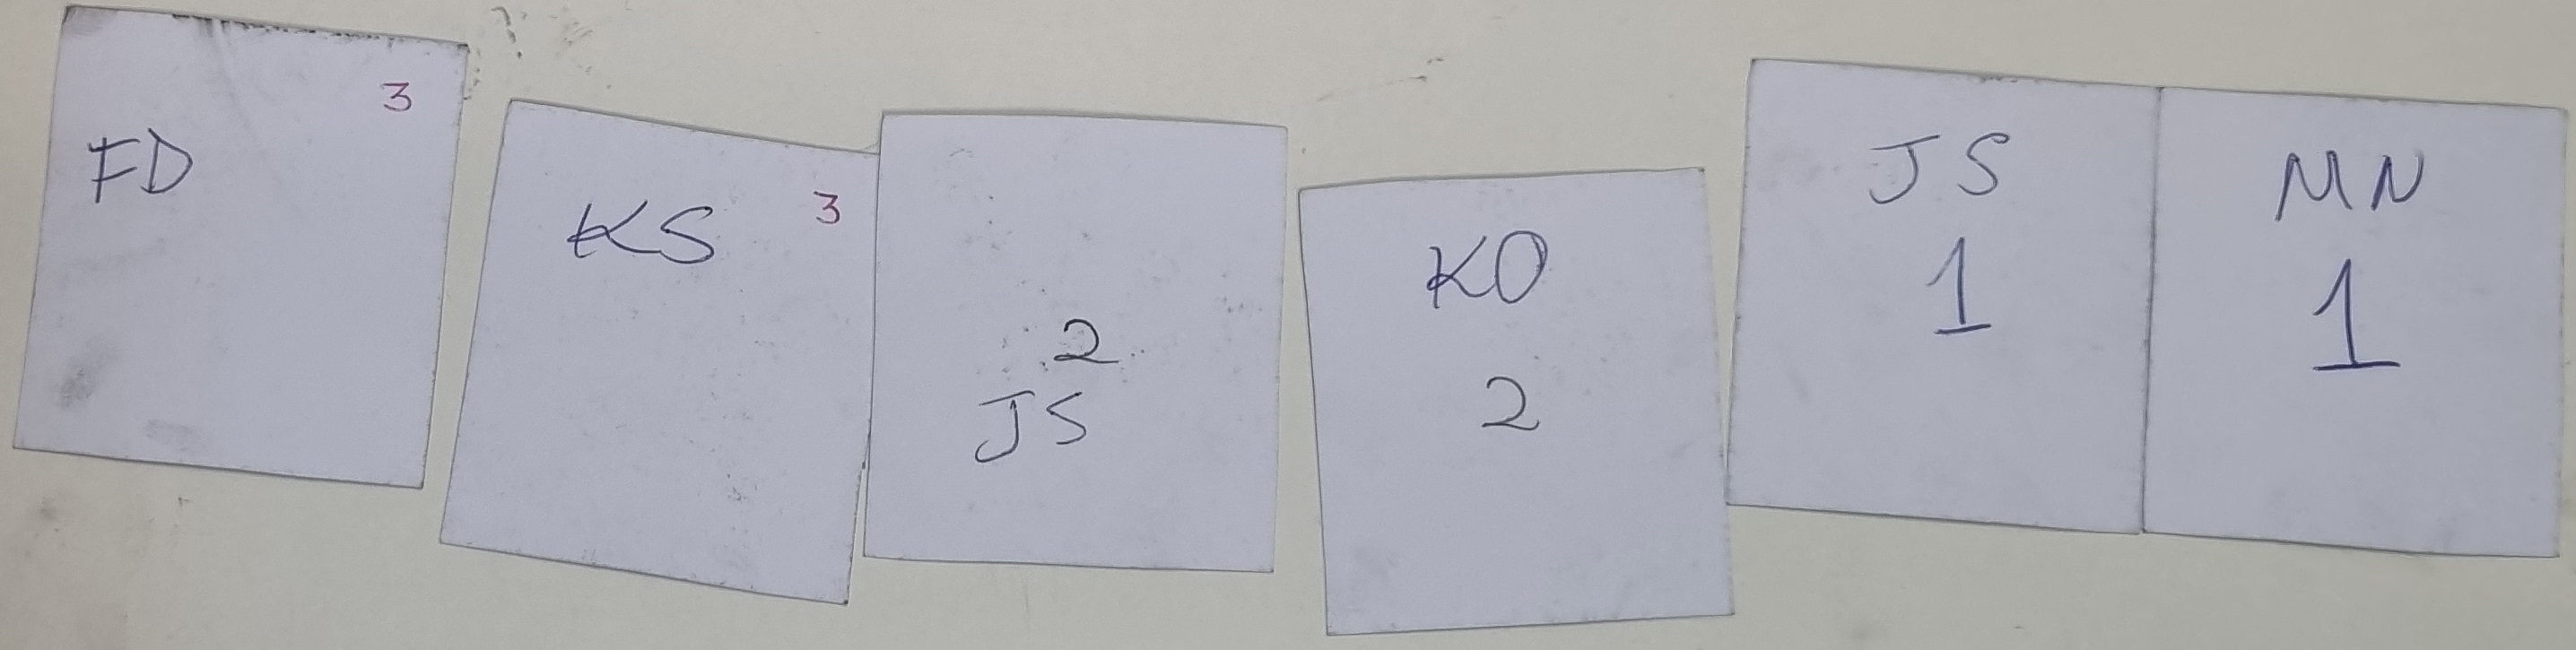 3
FD
3
KS
2
JS
KO
2
JS
1
MN
1